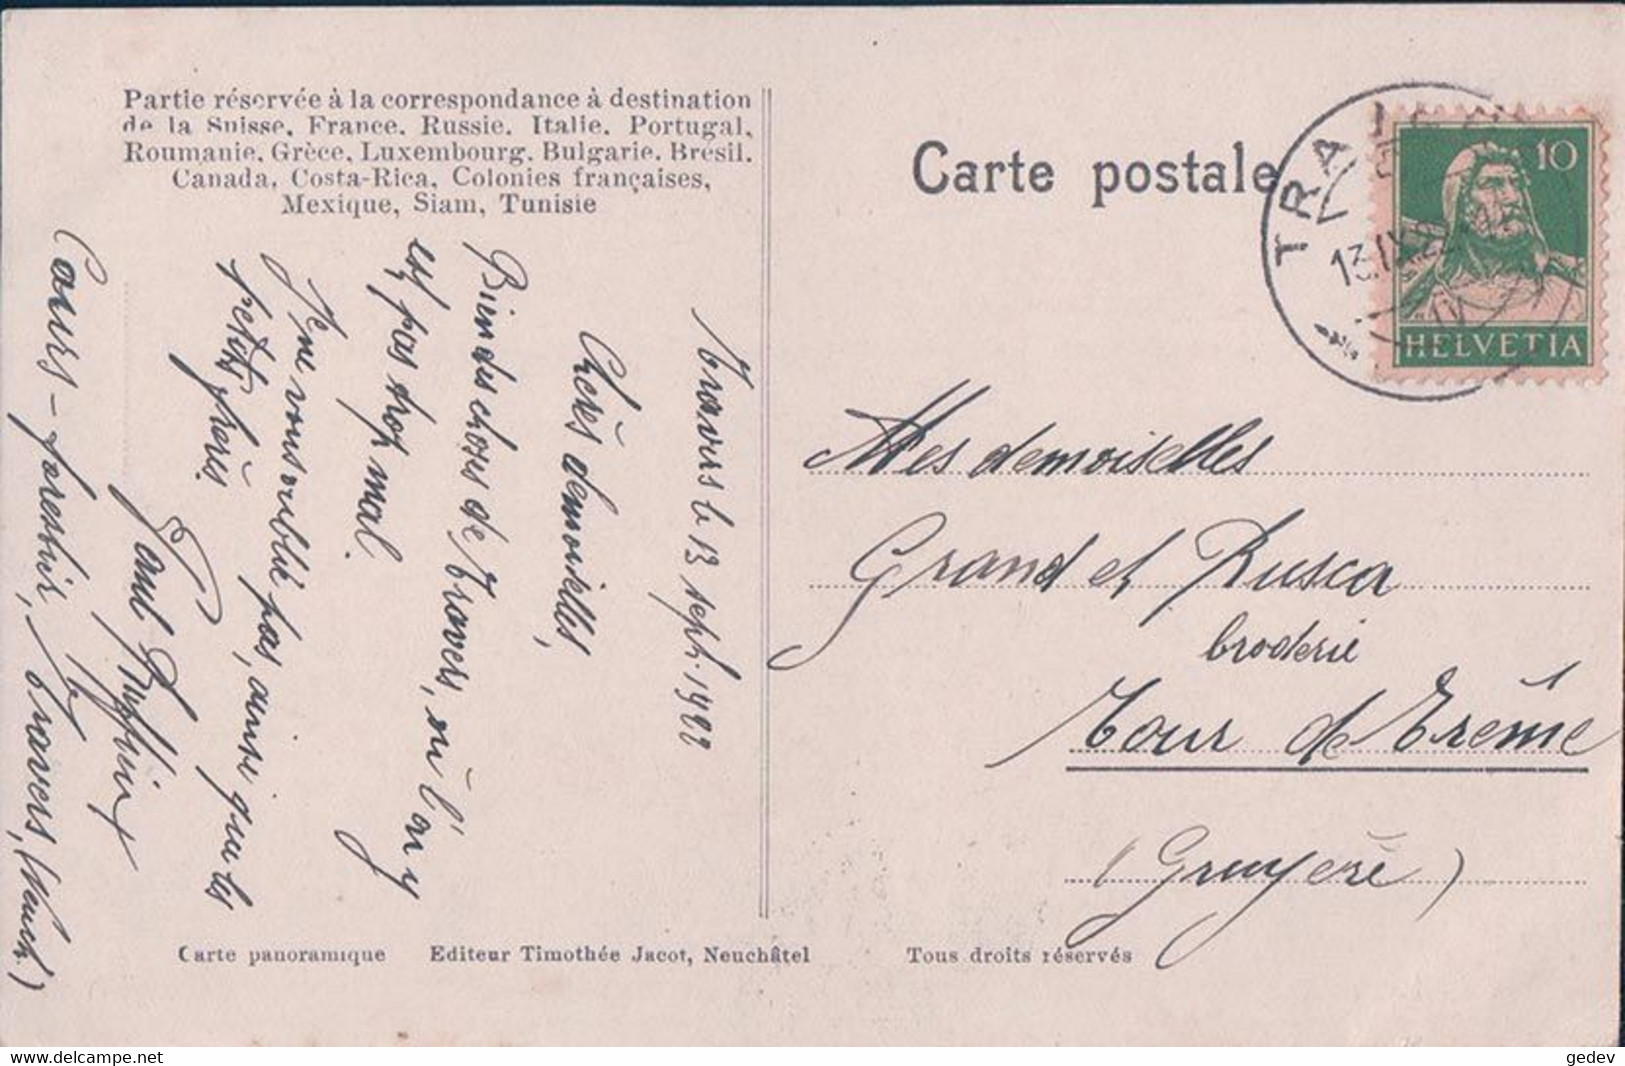 Partie réservée à la correspondance à destination
de la Suisse, France, Russie, Italie, Portugal,
Roumanie, Grèce, Luxembourg, Bulgarie, Brésil,
Canada, Costa-Rica, Colonies françaises,
Mexique, Siam, Tunisie
Travers le 13 sept. 1922
Chères demoiselles,
Bien des choses de Travers, où l'on y
est pas trop mal.
Je ne vous oublie pas, ainsi que les
petits frères.
Paul
Cours-forestier, Travers, (Neuch.)
Carte postale
TRA
13.IX.22
10
HELVETIA
Mesdemoiselles
Grand et Rusca
broderie
Tour de Trême
(Gruyère)
Carte panoramique Editeur Timothée Jacot, Neuchâtel Tous droits réservés
www.delcampe.net
gedev